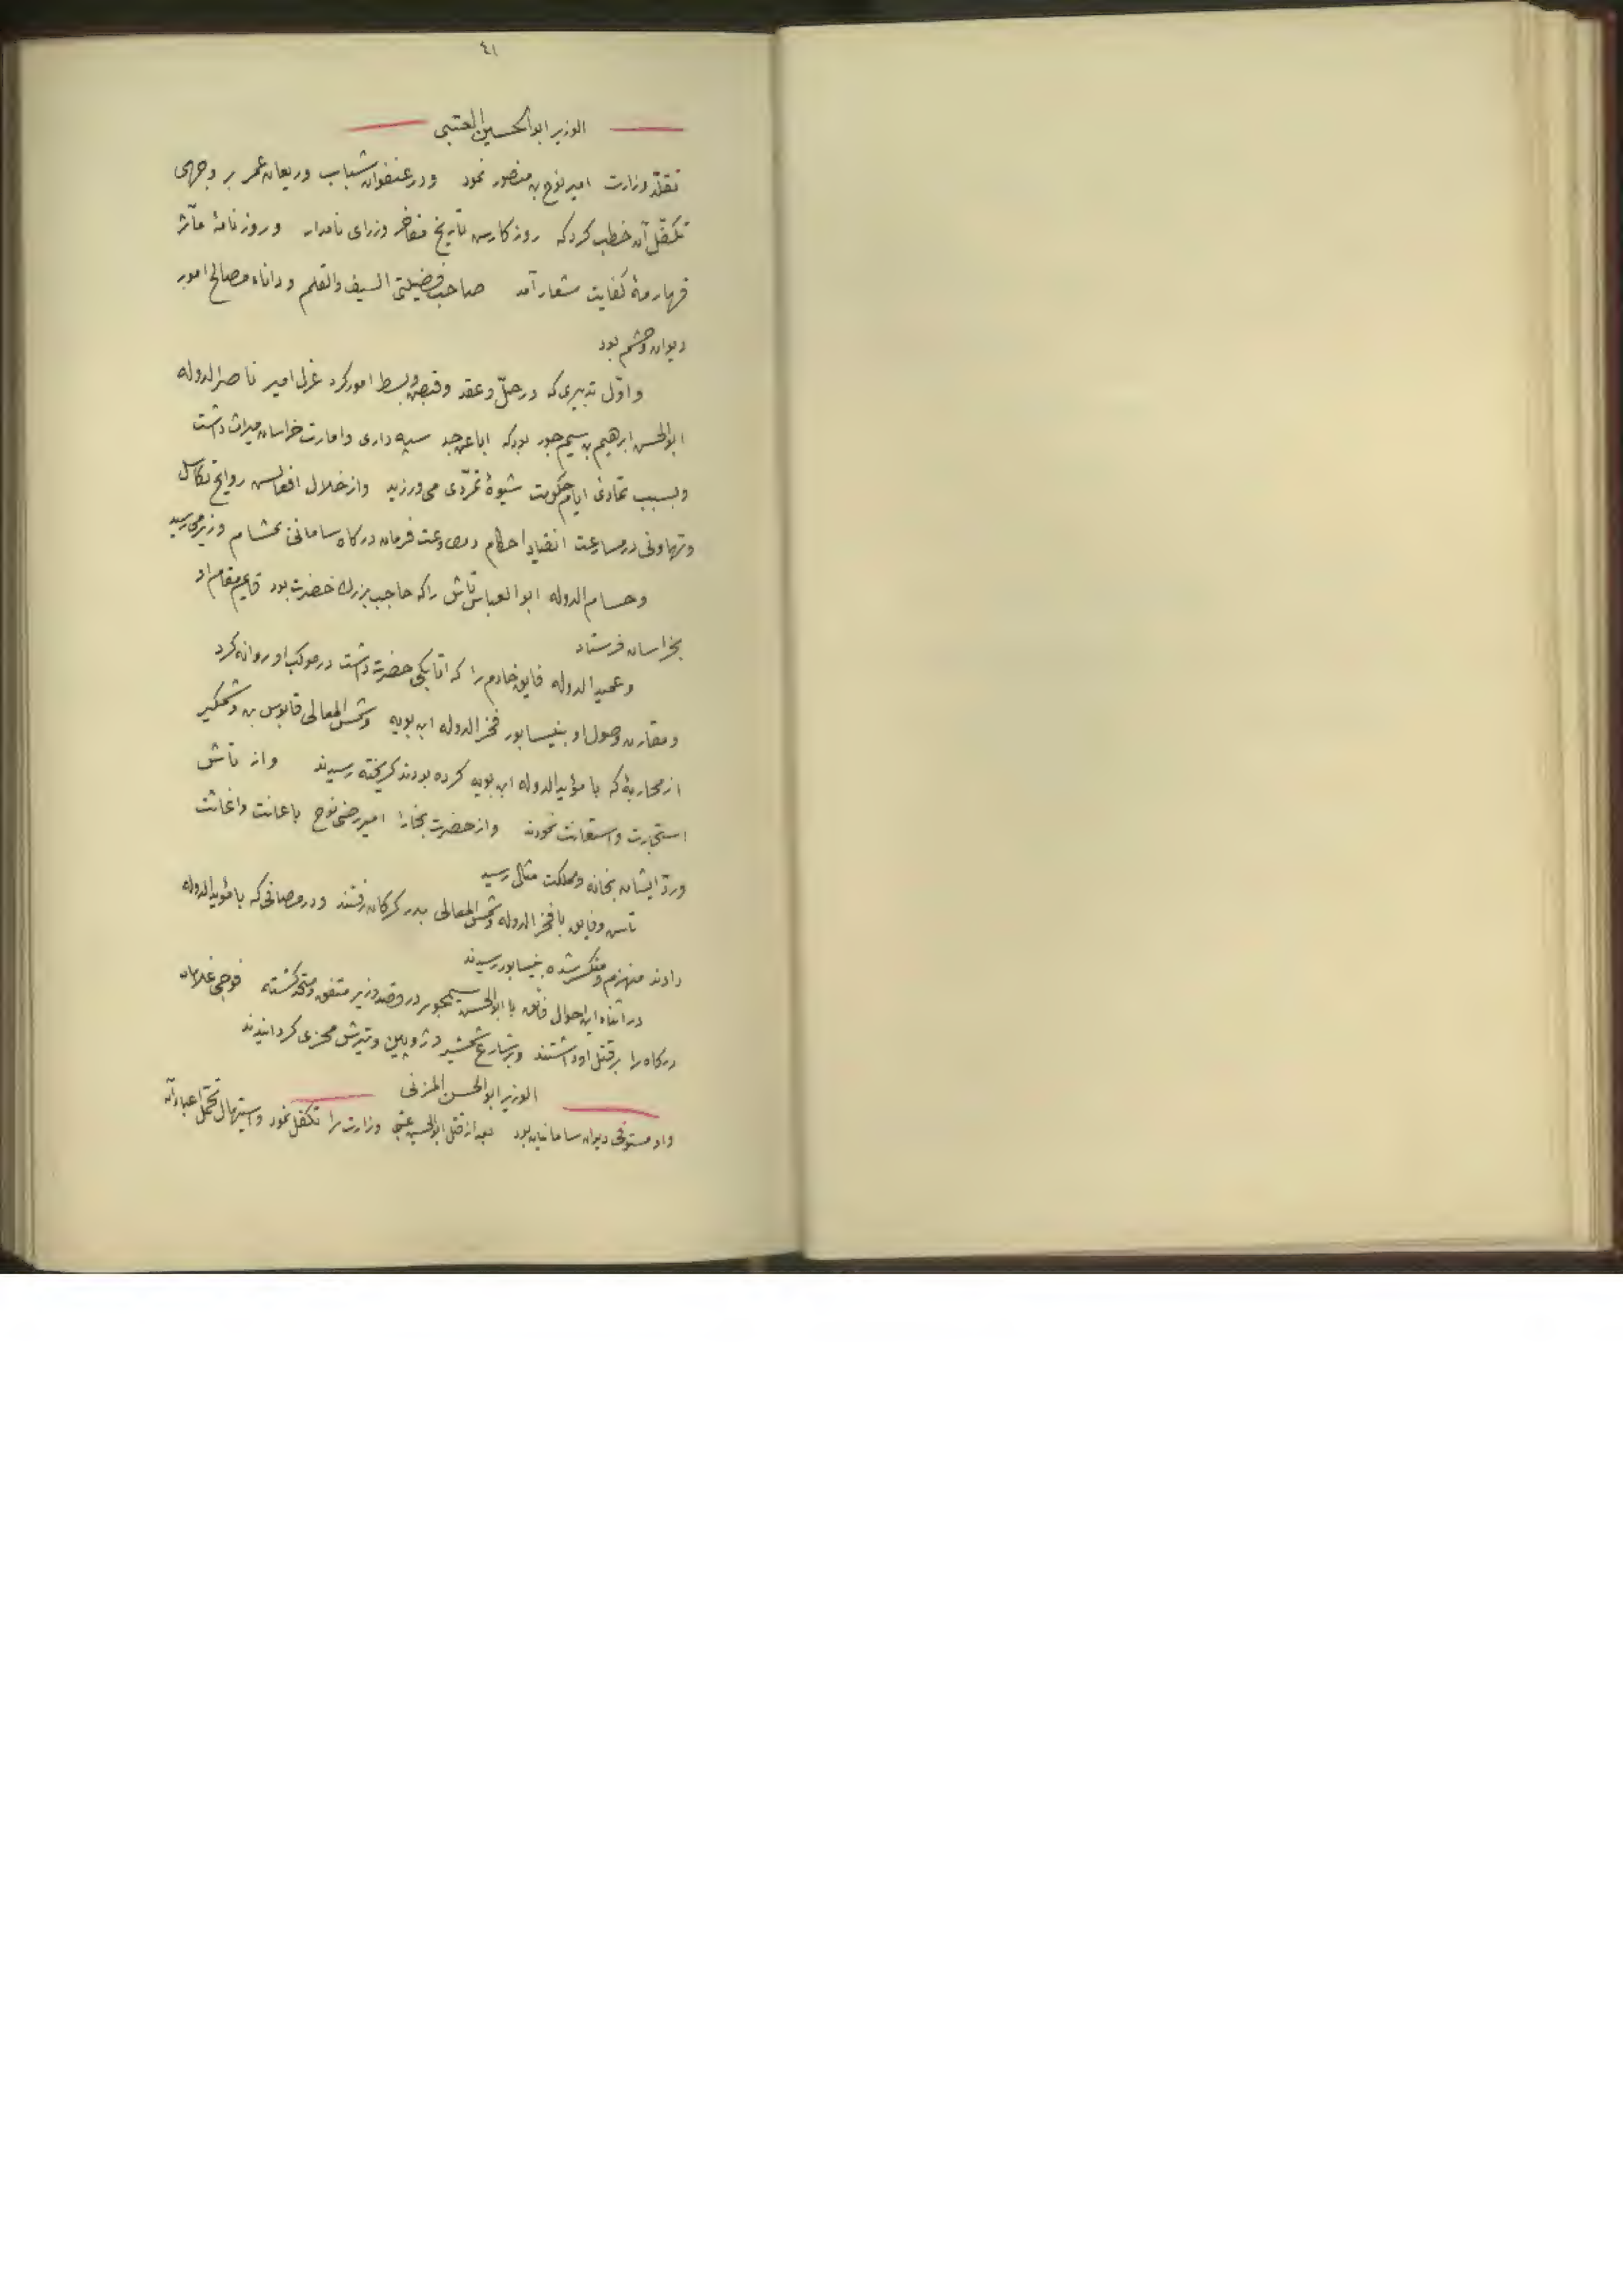 ٤١
الوزیر ابوالحسین العتبی
تقلّد وزارت امیر نوح بن منصور نمود ودر عنفوان شباب وریعان عمر بر وجهی
تکفّل آن خطب کرد که روزکارس تاریخ مفاخر وزرای نامدار وروزنامهٔ مآثر
کفایت شعار آمد صاحب فضیلتی السیف والقلم وداناء مصالح امور
دیوان وحشم بود
واوّل تدبیری که در حلّ وعقد وقبض وبسط امور کرد عزل امیر ناصرالدوله
ابوالحسن ابرهیم بن سیمجور بود که ابا عن جد سپه داری وامارت خراسان میراث داشت
وبسبب تمادیٔ ایام حکومت شیوهٔ تمرّدی می ورزید واز خلال افعالس روایح تکاسل
وتهاونی در مسارعت انقیاد احکام فرمان درکاه سامانی بمشام وزیر می رسید
وحسام الدوله ابوالعباس تاش را که حاجب بزرك حضرت بود قایم مقام او
بخراسان فرستاد
وعمید الدوله فایق خادم را که اتابکی حضرت داشت در موکب او روانه کرد
ومقارن وصول او بنیسابور فخرالدوله ابن بویه وشمس المعالی قابوس بن وشمکیر
از محاربهٔ که با مؤیدالدوله ابن بویه کرده بودند کریخته رسیدند واز تاش
استجارت واستعانت نمودند واز حضرت بخارا امیر رضی نوح باعانت واغاثت
وردّ ایشان بخانه ومملکت مثالی رسید
تاس وفایق با فخرالدوله وشمس المعالی بدر کرکان رفتند ودر مصافی که با مؤیدالدوله
دادند منهزم ومنکسر شده بنیسابور رسیدند
در اثناء این احوال فائق با ابوالحسن سیمجور در قصد وزیر متفق ومتحد کشته فوجی غلامان
درکاه را بر قتل او داشتند وبر شارع شمشیر وژوپین وتیرش مجزی کردانیدند
الوزیر ابوالحسن المزنی
واو مستوفی دیوان سامانیان بود بعد از قتل ابوالحسین عتبی وزارت را تکفّل نمود واستیهال تحمّل اعباء آن